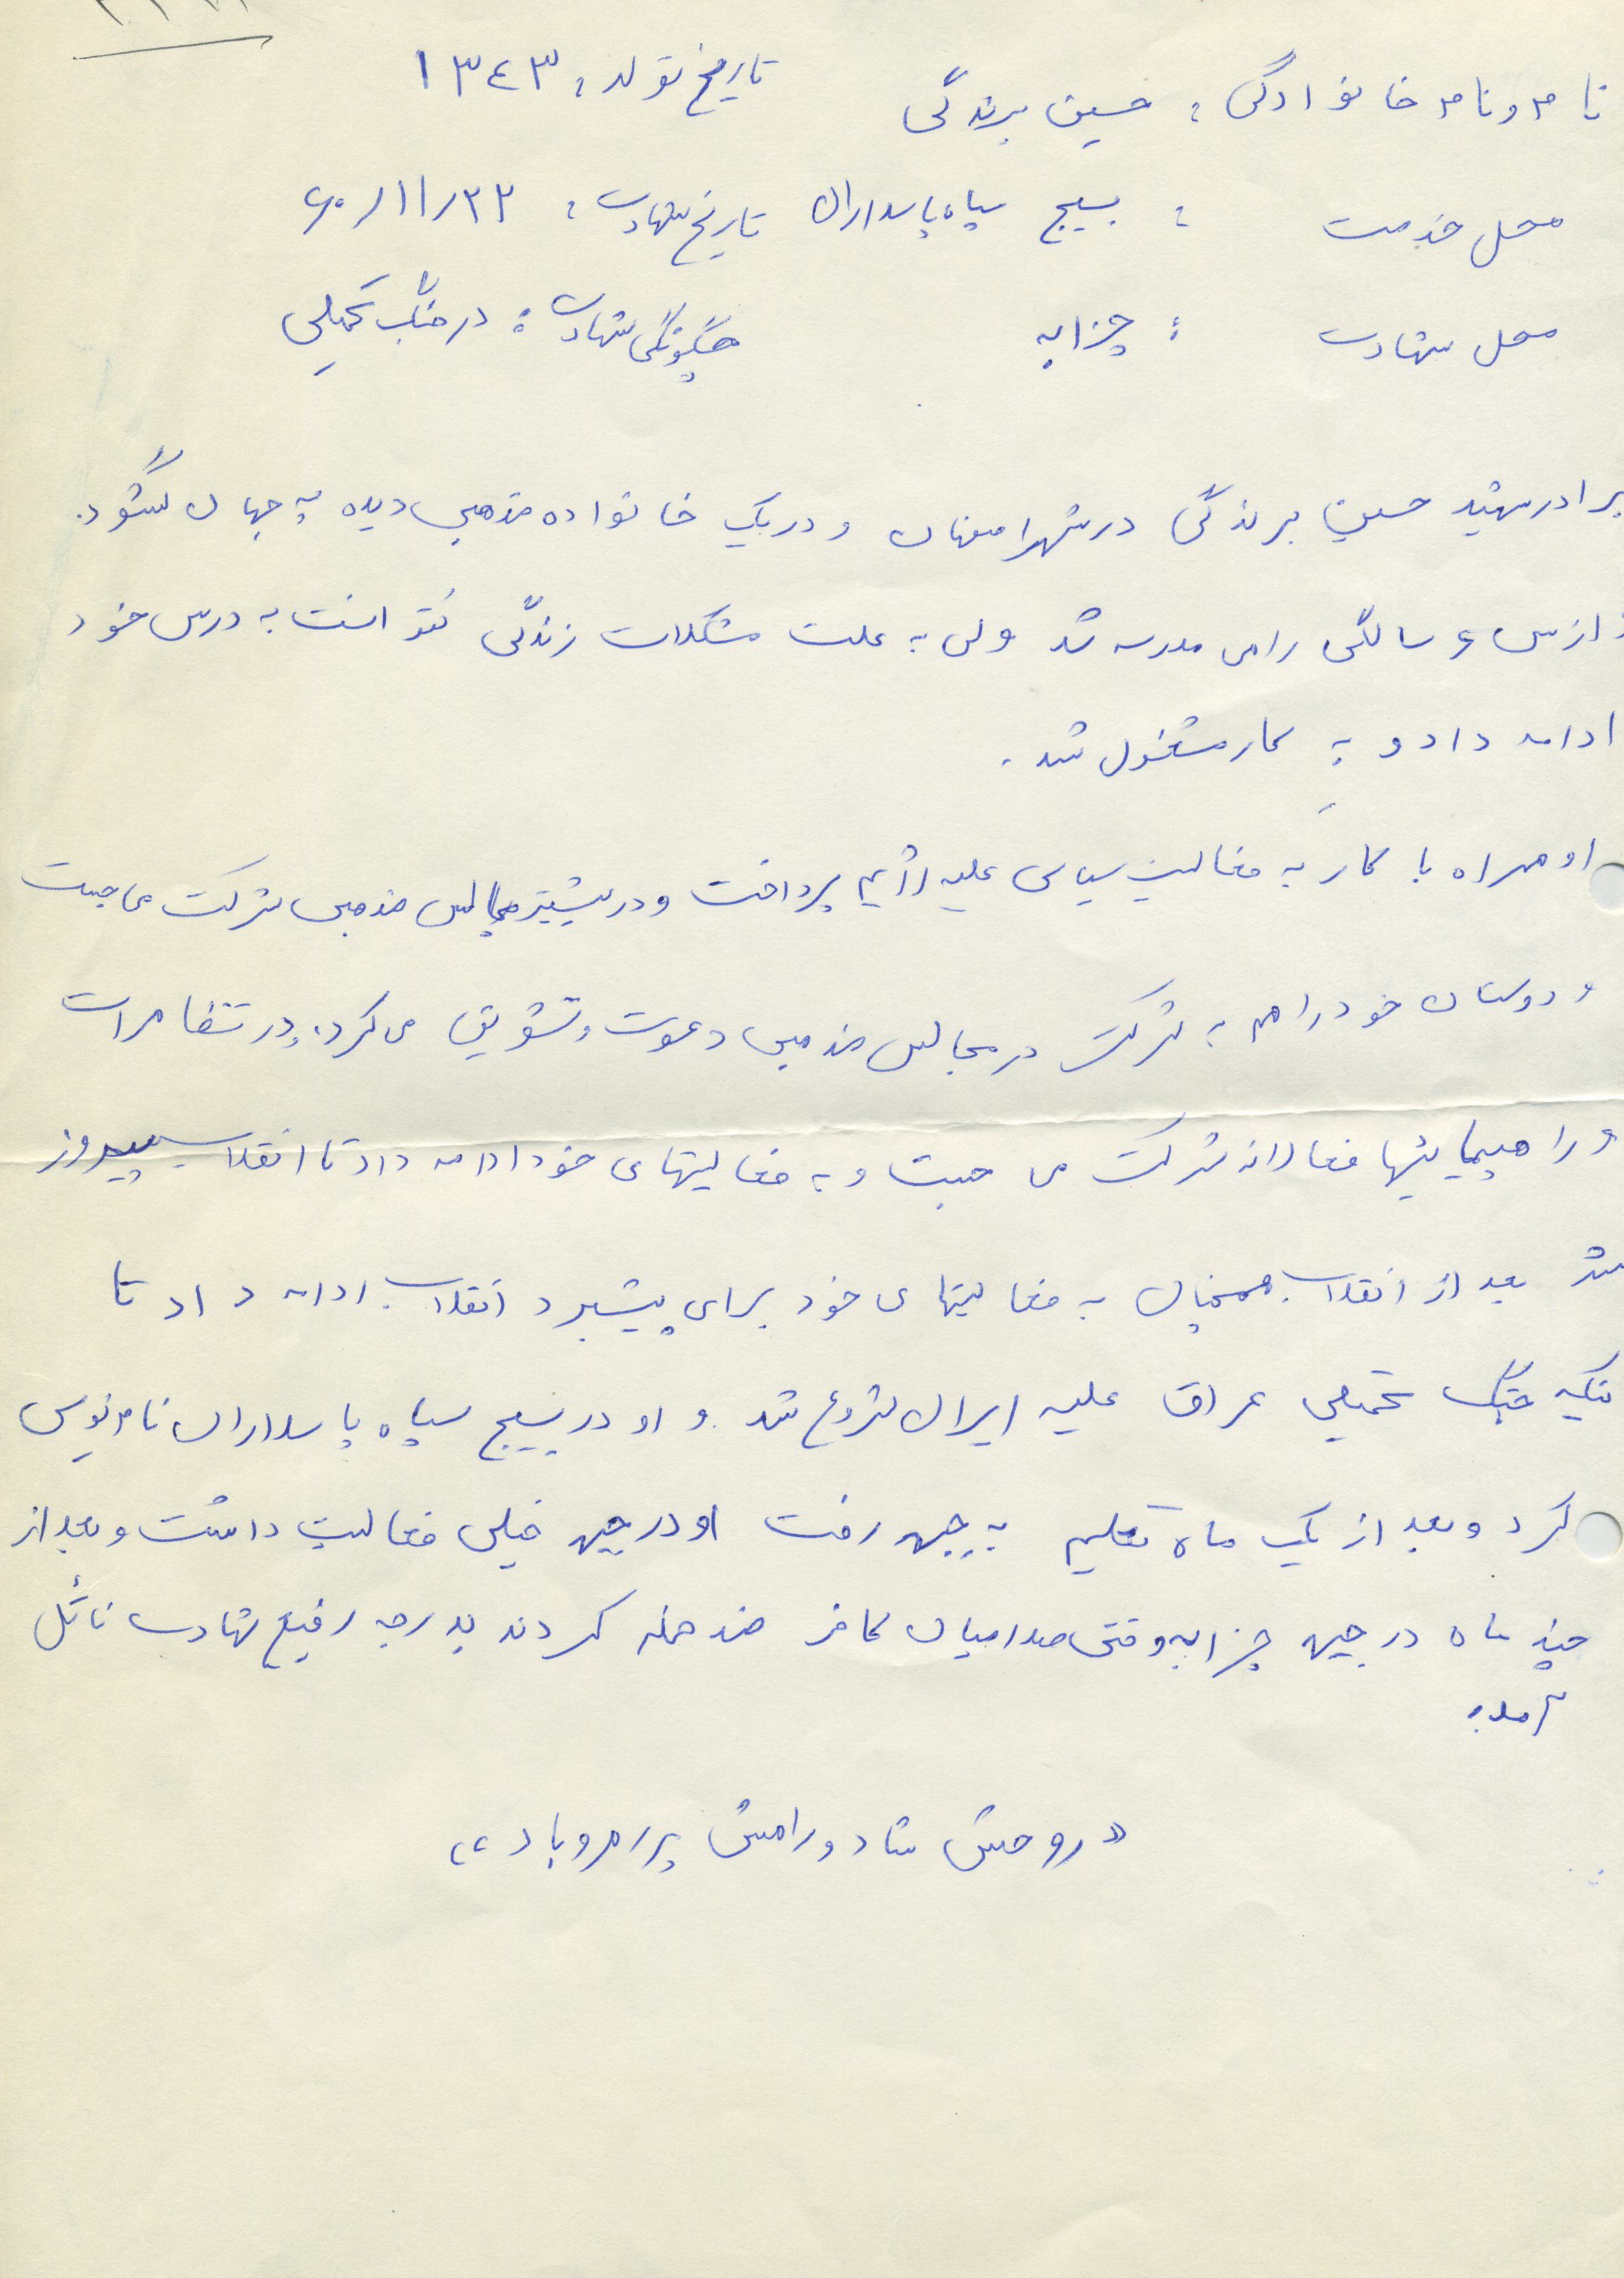 نام و نام خانوادگی : حسین برندگی تاریخ تولد : ۱۳٤۳
محل خدمت : بسیج سپاه پاسداران تاریخ شهادت : ۶۰/۱۱/۲۲
محل شهادت : چزابه چگونگی شهادت : در جنگ تحمیلی
برادر شهید حسین برندگی در شهر اصفهان و در یک خانواده مذهبی دیده به جهان گشود.
از سن ۶ سالگی راهی مدرسه شد ولی به علت مشکلات زندگی نتوانست به درس خود
ادامه داد و به کار مشغول شد .
او همراه با کار به فعالیت سیاسی علیه رژیم پرداخت و در بیشتر مجالس مذهبی شرکت می‌جست
و دوستان خود را هم به شرکت در مجالس مذهبی دعوت و تشویق می کرد. در تظاهرات
و راهپیمایی‌ها فعالانه شرکت می جست و به فعالیتهای خود ادامه داد تا انقلاب پیروز
شد بعد از انقلاب همچنان به فعالیتهای خود برای پیشبرد انقلاب ادامه داد تا
اینکه جنگ تحمیلی عراق علیه ایران شروع شد . و او در بسیج سپاه پاسداران نام‌نویسی
کرد و بعد از یک ماه تعلیم به جبهه رفت او در جبهه خیلی فعالیت داشت و بعد از
چند ماه در جبهه چزابه وقتی صدامیان کافر ضد حمله کردند بدرجه رفیع شهادت نائل
آمد.
« روحش شاد و راهش پر رهرو باد »